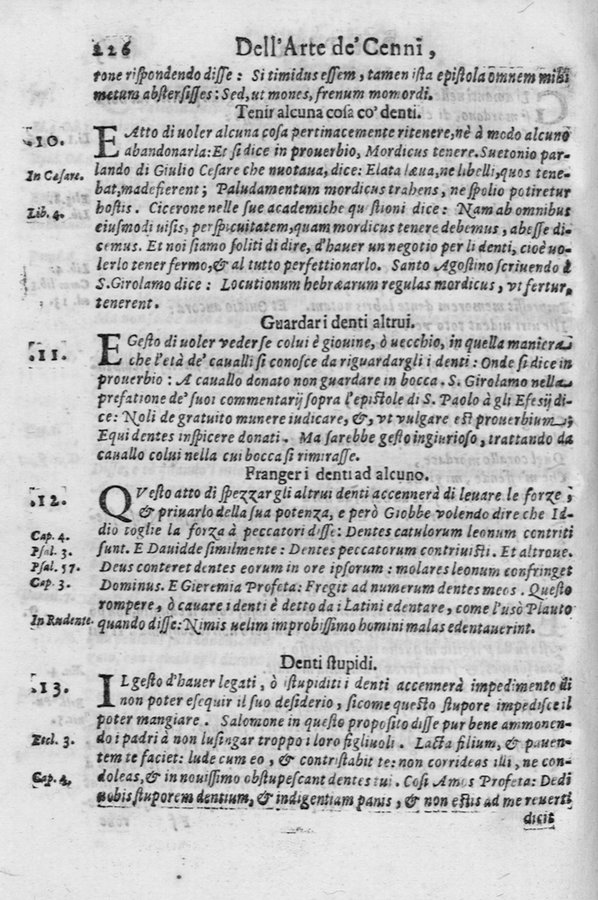 226 Dell'Arte de' Cenni,
rone rispondendo disse: Si timidus essem, tamen ista epistola omnem mihi
metum abstersisses: Sed, ut mones, frenum momordi.
Tenir alcuna cosa co' denti.
.10. EAtto di uoler alcuna cosa pertinacemente ritenere, nè à modo alcuno
abandonarla: Et si dice in prouerbio, Mordicus tenere. Suetonio par-
In Cesare. lando di Giulio Cesare che nuotaua, dice: Elata læua, ne libelli, quos tene-
bat, madefierent; Paludamentum mordicus trahens, ne spolio potiretur
Lib. 4. hostis. Cicerone nelle sue academiche qu stioni dice: Nam ab omnibus
eiusmodi uisis, perspicuitatem, quam mordicus tenere debemus, abesse di-
cemus. Et noi siamo soliti di dire, d'hauer un negotio per li denti, cioè uo-
lerlo tener fermo, & al tutto perfettionarlo. Santo Agostino scriuendo à
S. Girolamo dice: Locutionum hebræarum regulas mordicus, vt fertur,
tenerent.
Guardar i denti altrui.
.11. EGesto di uoler vederse colui è giouine, ò uecchio, in quella maniera
che l'età de' caualli si conosce da riguardargli i denti: Onde si dice in
prouerbio: A cauallo donato non guardare in bocca. S. Girolamo nella
prefatione de' suoi commentarij sopra l'epistole di S. Paolo à gli Efesij di-
ce: Noli de gratuito munere iudicare, &, vt vulgare est prouerbium,
Equi dentes inspicere donati. Ma sarebbe gesto ingiurioso, trattando da
cauallo colui nella cui bocca si rimirasse.
Franger i denti ad alcuno.
.12. QVesto atto di spezzar gli altrui denti accennerà di leuare le forze,
& priuarlo della sua potenza, e però Giobbe volendo dire che Id-
Cap. 4. dio toglie la forza à peccatori disse: Dentes catulorum leonum contriti
Psal. 3. sunt. E Dauidde similmente: Dentes peccatorum contriuisti. Et altroue.
Psal. 57. Deus conteret dentes eorum in ore ipsorum: molares leonum confringet
Cap. 3. Dominus. E Gieremia Profeta: Fregit ad numerum dentes meos. Questo
rompere, ò cauare i denti è detto da i Latini edentare, come l'usò Plauto
In Rudente. quando disse: Nimis uelim improbissimo homini malas edentauerint.
Denti stupidi.
.13. IL gesto d'hauer legati, ò istupiditi i denti accennerà impedimento di
non poter eseguir il suo desiderio, sicome questo stupore impedisce il
poter mangiare. Salomone in questo proposito disse pur bene ammonen-
Eccl. 3. do i padri à non lusingar troppo i loro figliuoli. Lacta filium, & pauen-
tem te faciet: lude cum eo, & contristabit te: non corrideas illi, ne con-
Cap. 4. doleas, & in nouissimo obstupescant dentes tui. Cosi Amos Profeta: Dedi
nobis stuporem dentium, & indigentiam panis, & non estis ad me reuersi
dicit